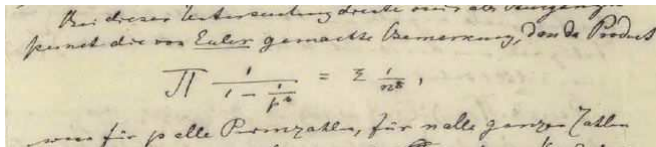 Bei dieser Untersuchung diente mir als Ausgangs-
punct die von Euler gemachte Bemerkung, dass das Product
∏ 1/(1 − 1/p^s) = Σ 1/n^s,
wenn für p alle Primzahlen, für n alle ganzen Zahlen